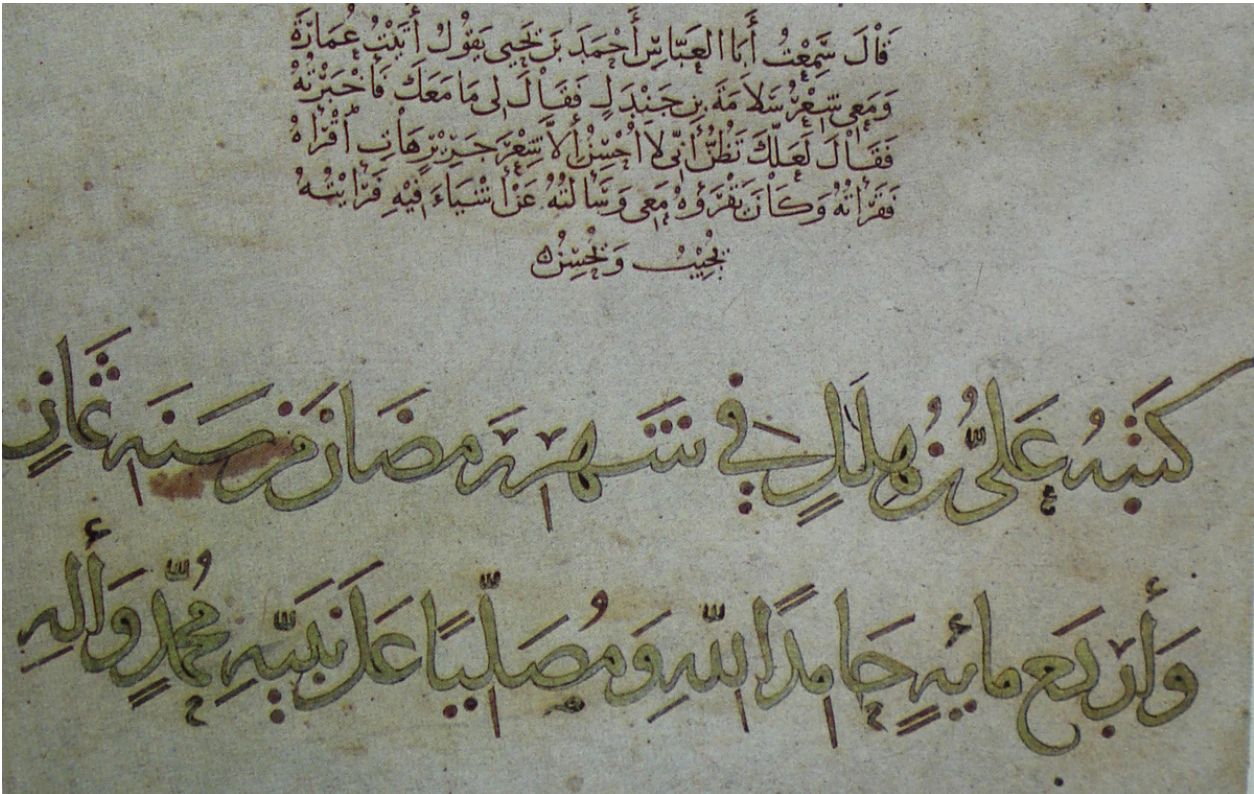 قَالَ سَمِعْتُ أَبَا العَبَّاسِ أَحْمَدَ بنَ يَحْيى يَقُولُ أَتَيْتُ عُمَارَةَ
وَمَعِي شِعْرُ سَلَامَةَ بنِ جَنْدَلٍ فَقَالَ لِي مَا مَعَكَ فَأَخْبَرْتُهُ
فَقَالَ لَعَلَّكَ تَظُنُّ أَنِّي لَا أُحْسِنُ أَلَّا شِعْرَ جَرِيْرٍ هَاتِ اقْرَأهُ
فَقَرَأتُهُ وَكَانَ يَقْرَؤهُ مَعِي وَسَأَلتُهُ عَنْ أَشْيَاءَ فِيْهِ فَرَأَيْتُهُ
يُجِيْبُ وَيُحْسِنُ
كَتَبَهُ عَلِيُّ بنُ هِلَالٍ فِي شَهْرِ رَمَضَانَ مِنْ سَنَةِ ثَمَانٍ
وَأَربَعِ مِائَةٍ حَامِدًا للهِ وَمُصَلِّيًا عَلَى نَبِيِّهِ مُحَمَّدٍ وَأَلِهِ